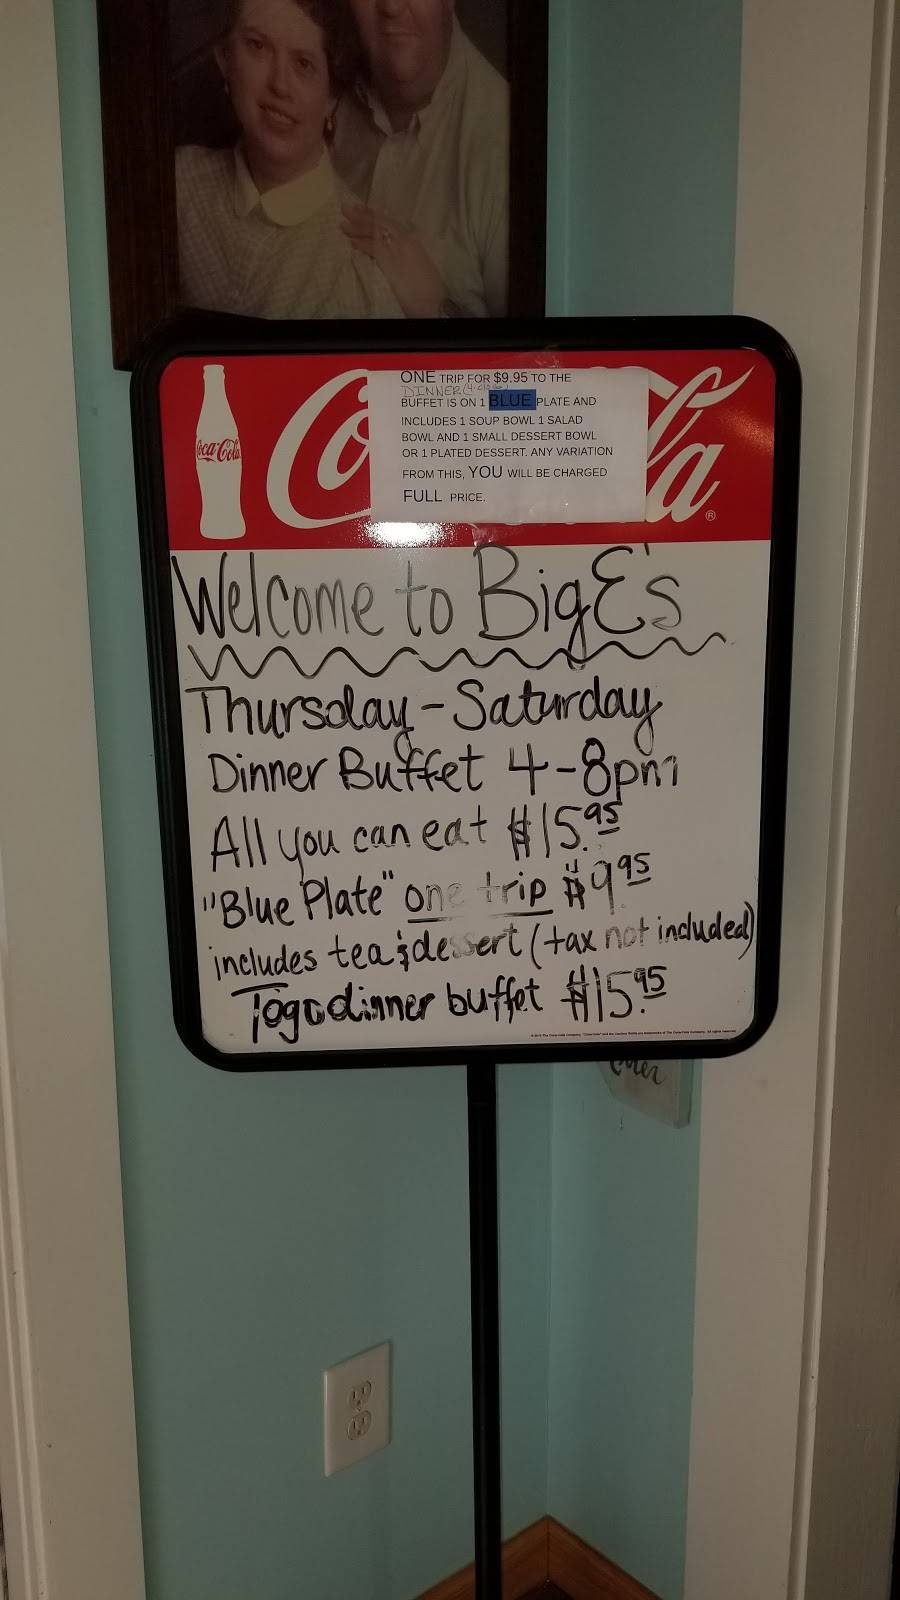 ONE TRIP FOR $9.95 TO THE
DINNER
BUFFET IS ON 1 BLUE PLATE AND
INCLUDES 1 SOUP BOWL 1 SALAD
BOWL AND 1 SMALL DESSERT BOWL
OR 1 PLATED DESSERT. ANY VARIATION
FROM THIS, YOU WILL BE CHARGED
FULL PRICE.
Coca-Cola
Co la®
Welcome to BigE's
Thursday - Saturday
Dinner Buffet 4-8pm
All you can eat $15.95
"Blue Plate" one trip $9.95
includes tea & dessert (tax not included)
Togo dinner buffet $15.95